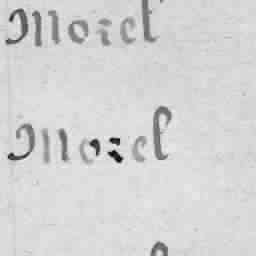 Morel
Morel